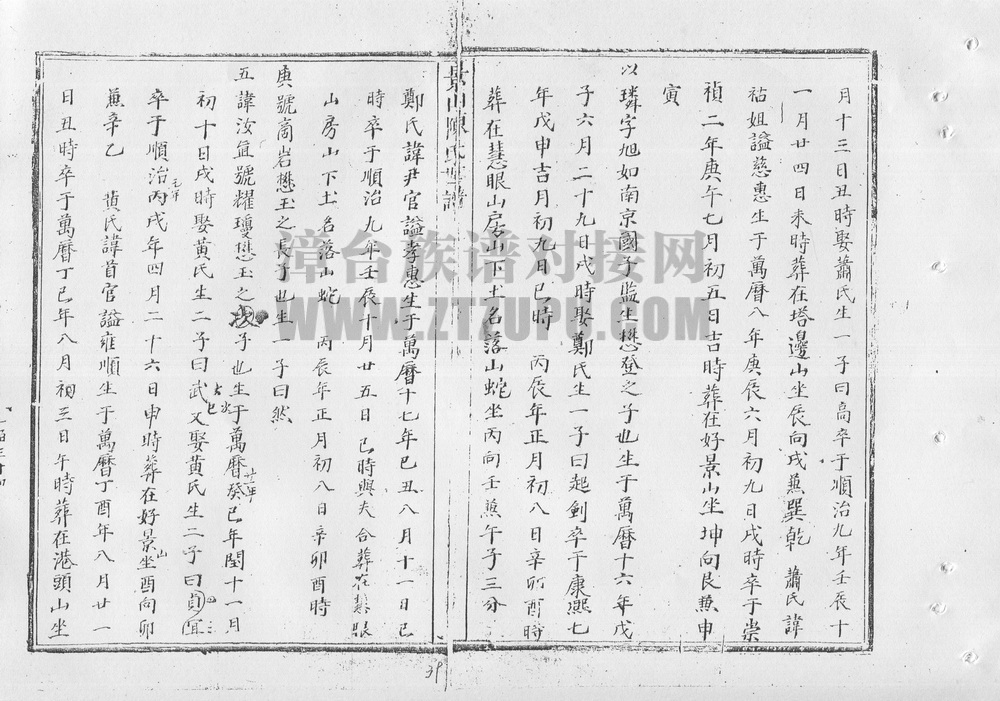 月十三日丑時娶蕭氏生一子曰高卒于順治九年壬辰十
一月廿四日未時葬在塔邊山坐辰向戌兼巽乾 蕭氏諱
祜姐謚慈惠生于萬曆八年庚辰六月初九日戌時卒于崇
禎二年庚午七月初五日吉時葬在好景山坐坤向艮兼申
寅
以璘字旭如南京國子監生懋登之子也生于萬曆十六年戊
子六月二十九日戌時娶鄭氏生一子曰起劍卒于康熙七
年戊申吉月初九日巳時 丙辰年正月初八日辛卯酉時
葬在慧眼山房山下土名落山蛇坐丙向壬兼午子三分
景山陳氏世譜
鄭氏諱尹官謚孝惠生于萬曆十七年己丑八月十一日巳
時卒于順治九年壬辰十月廿五日巳時與夫合葬在慧眼
山房山下土名落山蛇 丙辰年正月初八日辛卯酉時
庚號啇岩懋玉之長子也生一子曰然
五諱汝氲號耀瓊懋玉之次子也生于萬曆廿一年癸巳年閏十一月
初十日戌時娶黃氏生二子曰武又娶黃氏生二子曰貞宜
卒于順治元年丙戌年四月二十六日申時葬在好景山坐酉向卯
兼辛乙 黃氏諱首官謚雍順生于萬曆丁酉年八月廿一
日丑時卒于萬曆丁巳年八月初三日午時葬在港頭山坐
漳台族谱对接网
WWW.ZTZUPU.COM